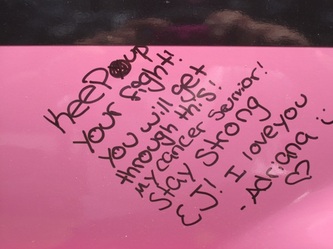 Keep up
your fight!
you will get
through this!
my cancer survivor!
Stay Strong
EJ! I love you
- Adriana :)
♡